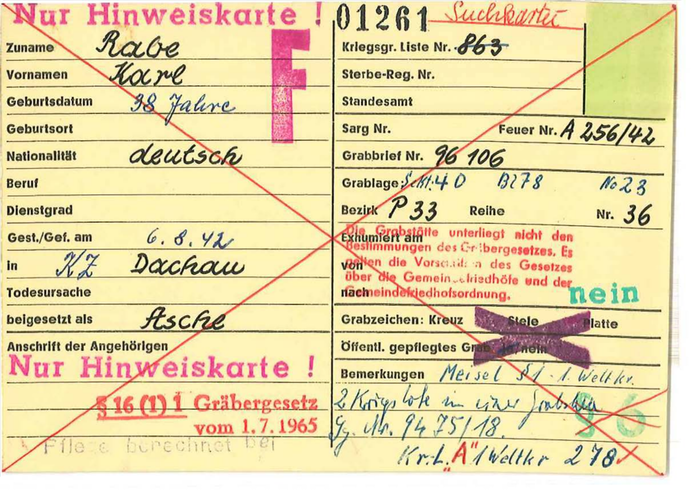 Nur Hinweiskarte !
Zuname Rabe
Vornamen Karl
Geburtsdatum 38 Jahre
Geburtsort
Nationalität deutsch
Beruf
Dienstgrad
Gest./Gef. am 6.8.42
in KZ Dachau
Todesursache
beigesetzt als Asche
Anschrift der Angehörigen
Nur Hinweiskarte !
§ 16 (1) 1 Gräbergesetz
vom 1.7.1965
berechnet bei
F
01261 Suchkartei
Kriegsgr. Liste Nr. 863
Sterbe-Reg. Nr.
Standesamt
Sarg Nr. Feuer Nr. A 256/42
Grabbrief Nr. 96 106
Grablage: 40 Bl 78 No 23
Bezirk P 33 Reihe Nr. 36
Exhumiert am
von
nach
Die Grabstätte unterliegt nicht den
Bestimmungen des Gräbergesetzes. Es
gelten die Vorschriften des Gesetzes
über die Gemeindefriedhöfe und der
Gemeindefriedhofsordnung.
nein
Grabzeichen: Kreuz Stele Platte
Öffentl. gepflegtes Grab ja/nein
Bemerkungen Meisel § 1 - 1. Weltkr.
2 in einer
Nr. 9475/18.
§ 6
Kr. L. "A" 1 Weltkr 278